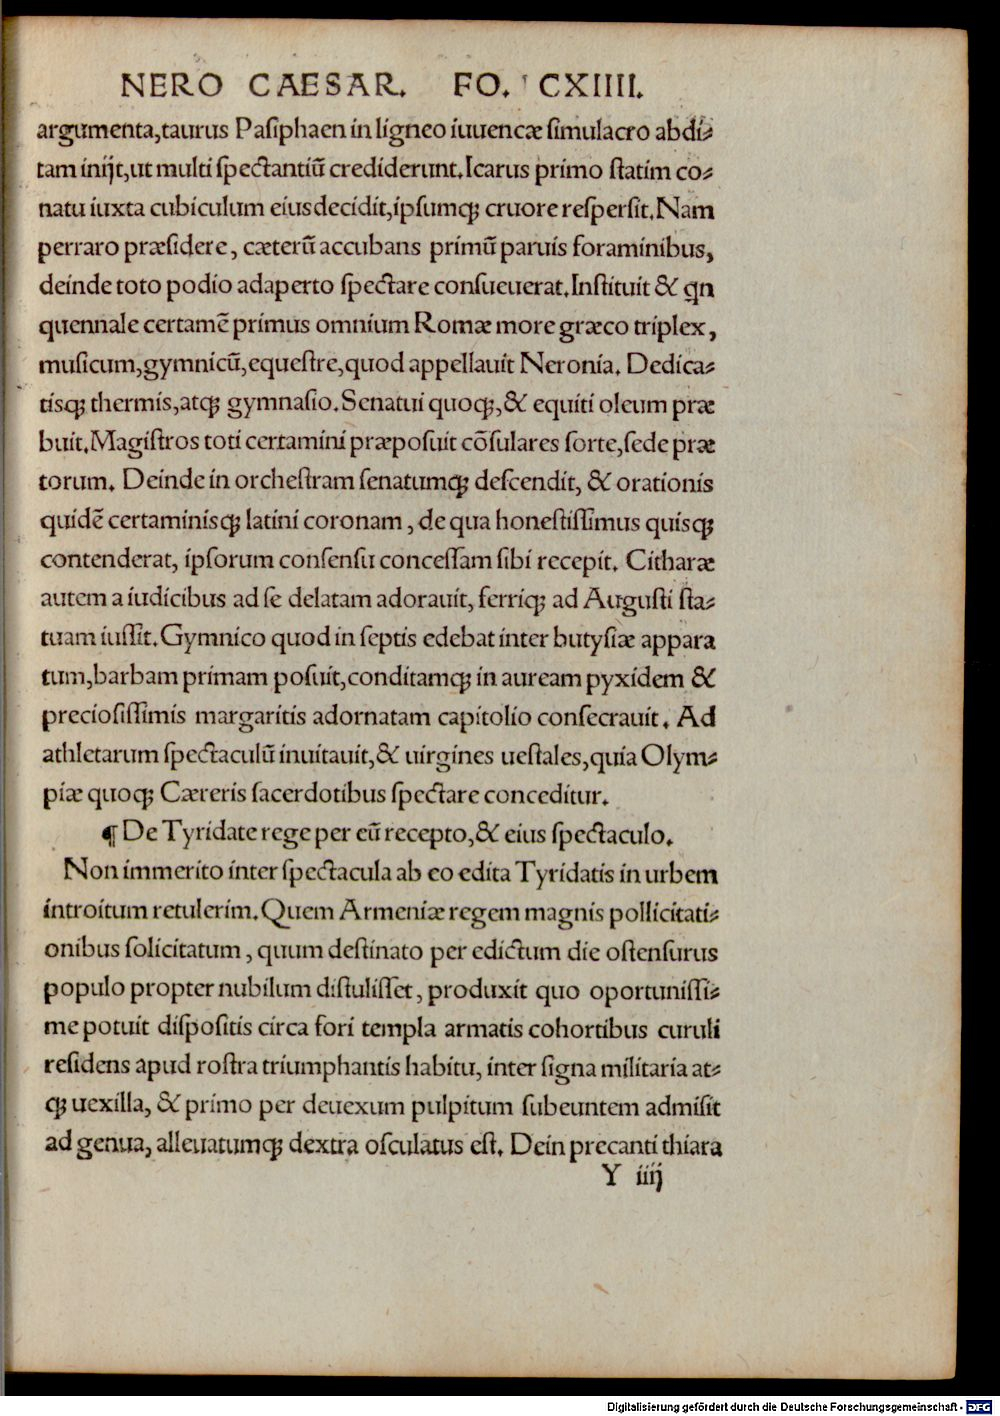 NERO CAESAR. FO. CXIIII.
argumenta,taurus Pasiphaen in ligneo iuuencæ simulacro abdi⸗
tam inijt,ut multi spectantiũ crediderunt.Icarus primo statim co⸗
natu iuxta cubiculum eius decidit,ipsumqꝫ cruore respersit.Nam
perraro præsidere, cæterũ accubans primũ paruis foraminibus,
deinde toto podio adaperto spectare consueuerat.Instituit & qn
quennale certamẽ primus omnium Romæ more græco triplex,
musicum,gymnicũ,equestre,quod appellauit Neronia. Dedica⸗
tisqꝫ thermis,atqꝫ gymnasio.Senatui quoqꝫ,& equiti oleum præ
buit.Magistros toti certamini præposuit cõsulares sorte,sede præ
torum. Deinde in orchestram senatumqꝫ descendit, & orationis
quidẽ certaminisqꝫ latini coronam, de qua honestissimus quisqꝫ
contenderat, ipsorum consensu concessam sibi recepit. Citharæ
autem a iudicibus ad se delatam adorauit, ferriqꝫ ad Augusti sta⸗
tuam iussit.Gymnico quod in septis edebat inter butysiæ appara
tum,barbam primam posuit,conditamqꝫ in auream pyxidem &
preciosissimis margaritis adornatam capitolio consecrauit. Ad
athletarum spectaculũ inuitauit,& uirgines uestales,quia Olym⸗
piæ quoqꝫ Cæreris sacerdotibus spectare conceditur.
¶ De Tyridate rege per eũ recepto,& eius spectaculo.
Non immerito inter spectacula ab eo edita Tyridatis in urbem
introitum retulerim.Quem Armeniæ regem magnis pollicitati⸗
onibus solicitatum, quum destinato per edictum die ostensurus
populo propter nubilum distulisset, produxit quo oportunissi⸗
me potuit dispositis circa fori templa armatis cohortibus curuli
residens apud rostra triumphantis habitu, inter signa militaria at⸗
qꝫ uexilla, & primo per deuexum pulpitum subeuntem admisit
ad genua, alleuatumqꝫ dextra osculatus est. Dein precanti thiara
Y iiij
Digitalisierung gefördert durch die Deutsche Forschungsgemeinschaft - DFG